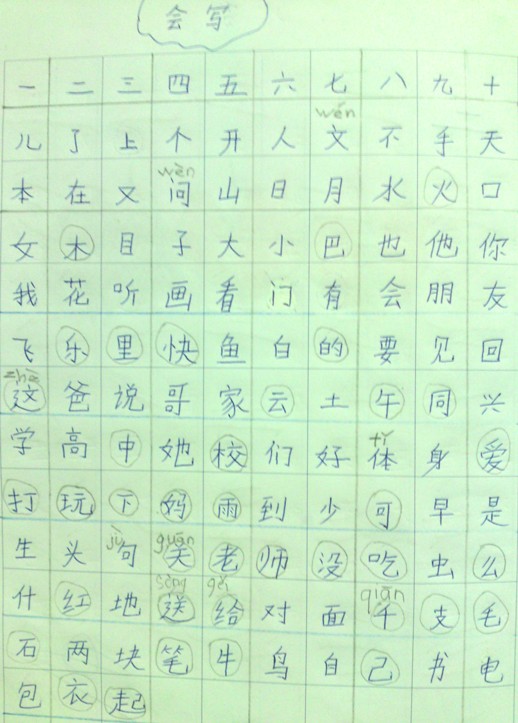 会写
一 二 三 四 五 六 七 八 九 十
wén
儿 了 上 个 开 人 文 不 手 天
wèn
本 在 又 问 山 日 月 水 火 口
女 木 目 子 大 小 巴 也 他 你
我 花 听 画 看 门 有 会 朋 友
飞 乐 里 快 鱼 白 的 要 见 回
zhè
这 爸 说 哥 家 云 土 午 同 兴
tǐ
学 高 中 她 校 们 好 体 身 爱
打 玩 下 妈 雨 到 少 可 早 是
jù guān
生 头 句 关 老 师 没 吃 虫 么
sòng gěi qiān
什 红 地 送 给 对 面 千 支 毛
石 两 块 笔 牛 鸟 自 己 书 电
包 衣 起